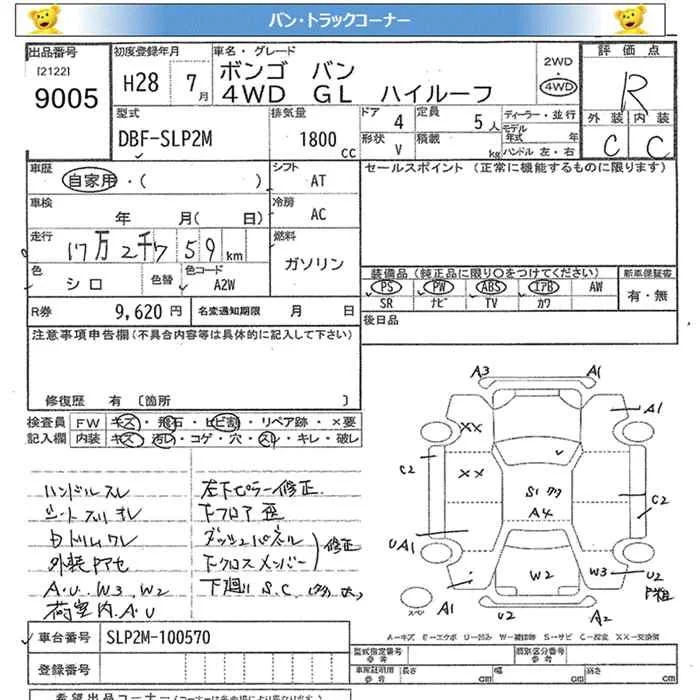 バン・トラックコーナー
出品番号
[2122]
9005
初度登録年月
H28 7月
車名・グレード
ボンゴ バン
4WD GL ハイルーフ
2WD
・
4WD
評価点
R
外装 内装
C C
型式
DBF-SLP2M
排気量
1800 cc
ドア 4
形状 V
定員 5人
積載 kg
ディーラー・並行
モデル年式 年
ハンドル 左・右
車歴
自家用・( )
シフト
AT
セールスポイント (正常に機能するものに限ります)
車検
年 月( 日)
冷房
AC
走行
17万2千759km
燃料
ガソリン
色
シロ
色替
色コード
A2W
装備品 (純正品に限り○をつけてください)
PS PW ABS エアB AW
SR ナビ TV カワ
新車保証書
有・無
R券
9,620 円
名変通知期限 月 日
後日品
注意事項申告欄(不具合内容等は具体的に記入して下さい)
修復歴 有 〔箇所 〕
検査員記入欄
FW キズ・飛石・ヒビ割・リペア跡・×要
内装 キズ・汚レ・コゲ・穴・スレ・キレ・破レ
ハンドルスレ
シートスリキレ
外装PアセA
A.U. W3. W2
荷室内.A.U
左下ピラー修正
下フロア歪
ダッシュパネル
下クロスメンバー
修正
下廻り S.C
A3 A1
A1
XX
C2
XX
S1
A4
C2
UA1
W2
W3
U2
A1
スペア
U2
A2
A=キズ E=エクボ U=凹み W=補修跡 S=サビ C=腐食 XX=交換済
車台番号
SLP2M-100570
登録番号
型式指定番号
参考
類別区分番号
参考
車検証記載
参考
長さ cm 幅 cm 高さ cm
希望出品コーナー